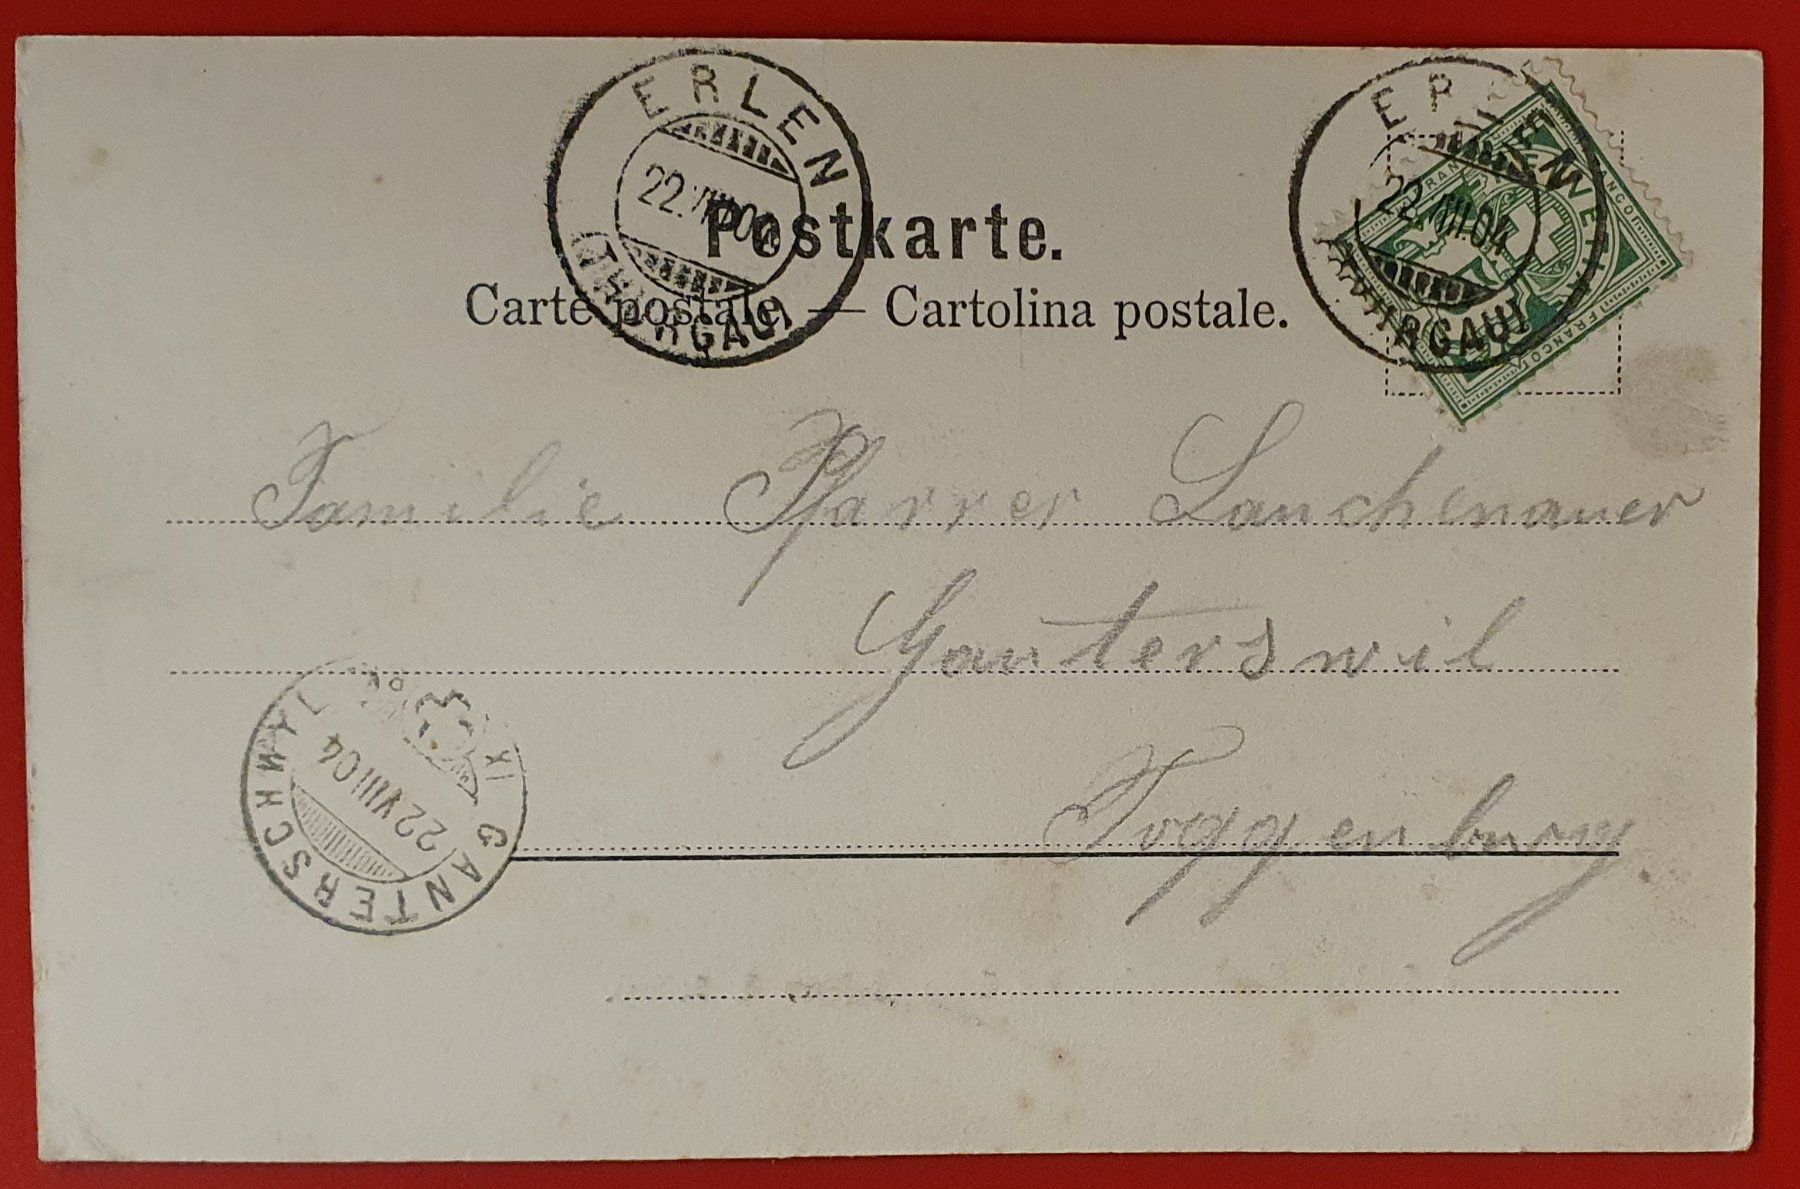 ERLEN
22.VIII.04
(THURGAU)
ERLEN
22.VIII.04
(THURGAU)
FRANCO HELVETIA FRANCO
Postkarte.
Carte postale. — Cartolina postale.
Familie Pfarrer Lauchenauer
Ganterswil
Toggenburg
GANTERSCHWYL
22 VIII 04
XI